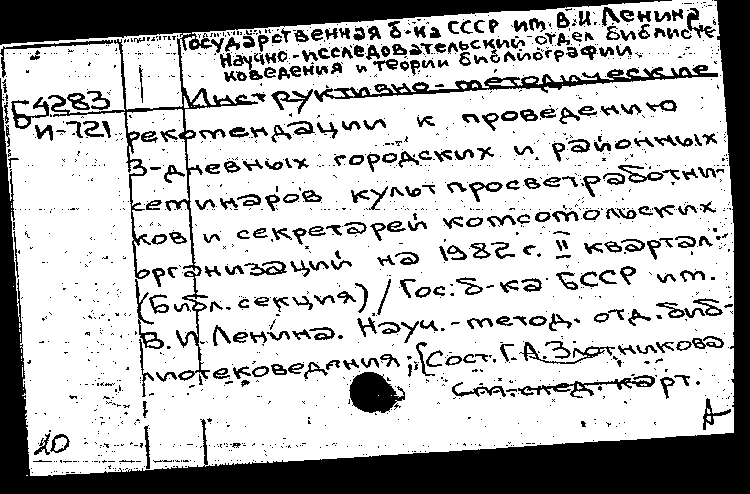 Государственная б-ка СССР им. В.И. Ленина
Научно-исследовательский отдел библиоте-
коведения и теории библиографии.
Б4283
И-721
Инструктивно-методические
рекомендации к проведению
3-дневных городских и районных
семинаров культпросветработни-
ков и секретарей комсомольских
организаций на 1982 г. II квартал:
(Библ. секция) / Гос. б-ка БССР им.
В.И. Ленина. Науч.-метод. отд. биб-
лиотековедения; [Сост. Г.А. Злотникова
см. след. карт.
20